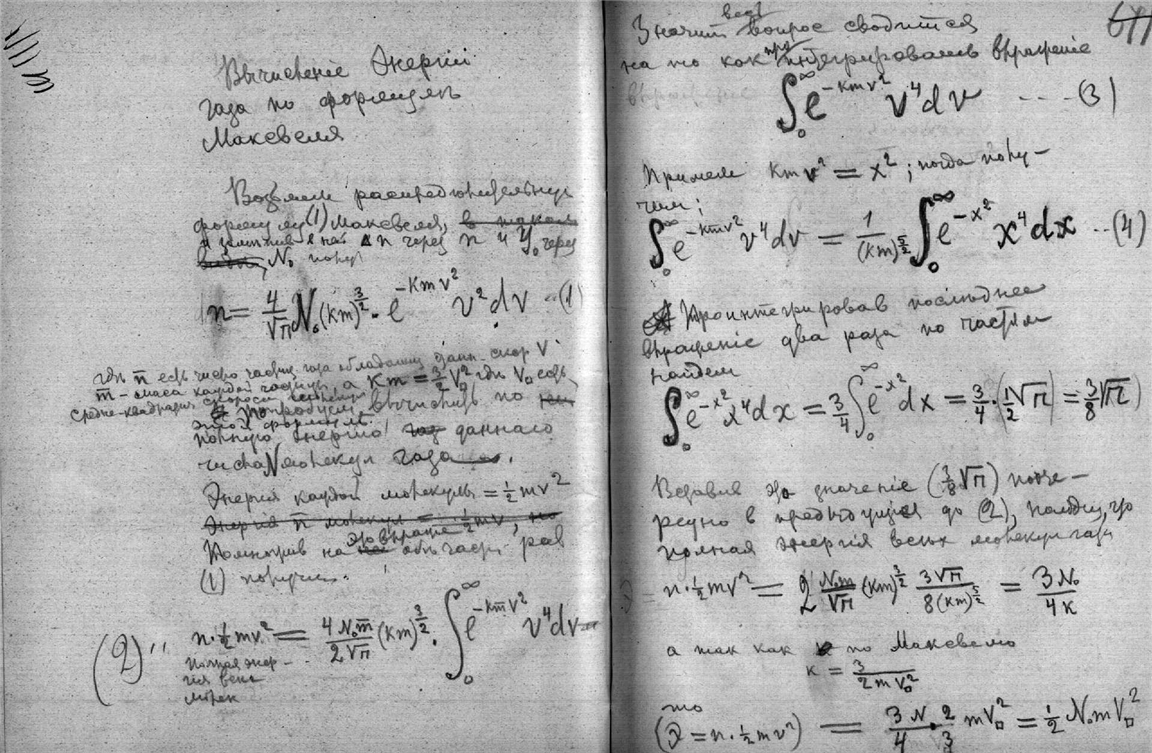 Вычисленіе Энергіи
газа по формулѣ
Максвеля
Возьмем распредѣлительную
формулу (1) Максвеля, в
и замѣтив в ней Δn через n и через
N₀ получ
n = 4/√π N₀ (km)^(3/2) · e^(-kmv²) v² dv ... (1)
гдѣ n есть число частиц газа обладающ данн. скор v
m - масса каждой частицы, а km = 3/2 V₀² гдѣ V₀ есть
средне-квадратич скорость
Попробуем вычислить по
этой формулѣ
полную энергію газ даннаго
числа N молекул газа.
Энергія каждой молекулы = ½ mv²
Энергія n молекул = n · ½ mv²,
это выраже
Помножив на обѣ части рав
(1) получим.
(2) n · ½ mv² = 4N₀m/2√π (km)^(3/2) · ∫₀^∞ e^(-kmv²) v⁴ dv
полная энер-
гія всѣх
молек
Значит весь вопрос сводится
на то как проинтегрировать выраженіе
∫₀^∞ e^(-kmv²) v⁴ dv ---- (3)
Примем kmv² = x²; тогда полу-
чим:
∫₀^∞ e^(-kmv²) v⁴ dv = 1/(km)^(5/2) ∫₀^∞ e^(-x²) x⁴ dx ... (4)
Проинтегрировав послѣднее
выраженіе два раза по частям
найдем
∫₀^∞ e^(-x²) x⁴ dx = 3/4 ∫₀^∞ e^(-x²) dx = 3/4 · (½√π) = 3/8 √π)
Вставив это значеніе (3/8 √π) пооче-
редно в предыдущія до (2), найдем, что
полная энергія всѣх молекул газа
Э = n · ½ mv² = 2 N₀m/√π (km)^(3/2) 3√π/8(km)^(5/2) = 3N₀/4k
а так как по Максвелю
k = 3/2mV₀²
то
(Э = n · ½ mv²) = 3N/4 · 2/3 mV₀² = ½ N₀mV₀²